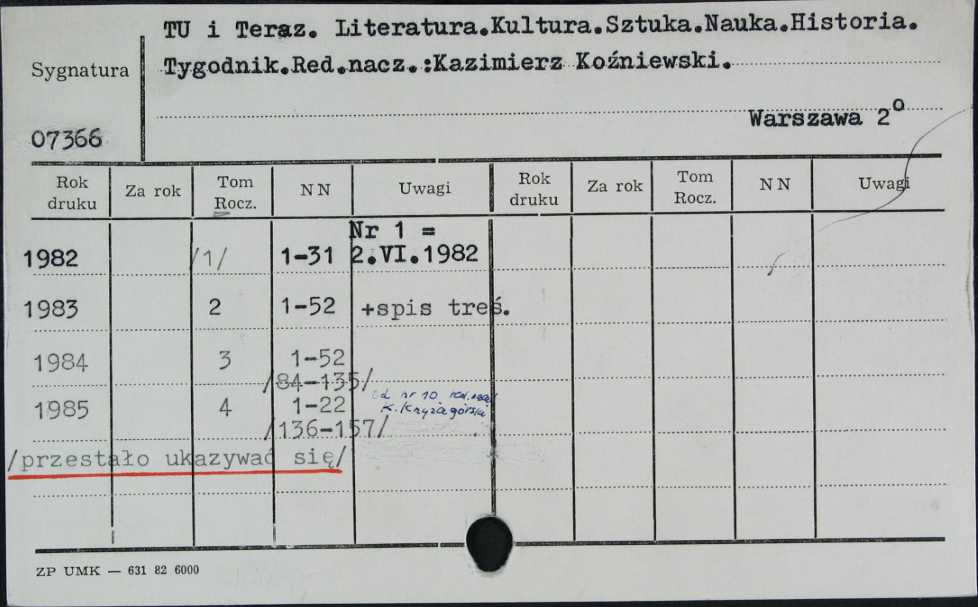 TU i Teraz. Literatura.Kultura.Sztuka.Nauka.Historia.
Sygnatura Tygodnik.Red.nacz.:Kazimierz Koźniewski.
07366 Warszawa 2°
Rok druku Za rok Tom Rocz. NN Uwagi Rok druku Za rok Tom Rocz. NN Uwagi
Nr 1 =
1982 /1/ 1-31 2.VI.1982
1983 2 1-52 +spis treś.
1984 3 1-52
/84-135/
od nr 10 red. nacz.
1985 4 1-22 K. Krzyżagórski
/136-157/
/przestało ukazywać się/
ZP UMK — 631 82 6000